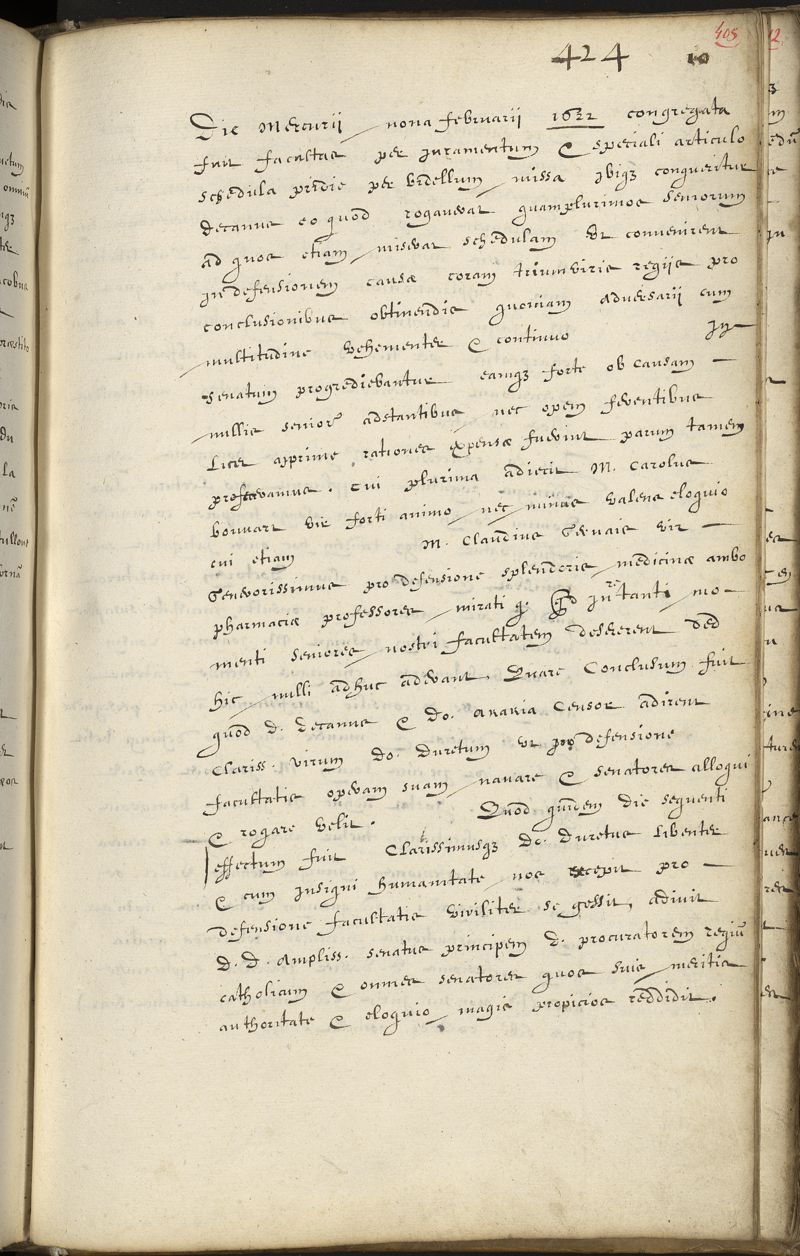 408
424 10
Die Mercurii nona februarii 1622 congregata
fuit facultas per juramentum & speciali articulo
schedula pridie per bidellum missa ibiqꝫ conqueritur
decanus eo quod rogaverat quamplurimos seniorum
ad quos etiam miserat schedulam ut convenirent
in defensionem causæ coram triumviris regiis pro
conclusionibus obtinendis quoniam adversarii cum
multitudine vehementer & continuo in
senatum progrediebantur eamqꝫ forte ob causam
nullis senior͂ adstantibus nec opem ferentibus
licet apprime rationes expensæ fuerint parum tamen
proferamus. cui plurima adiecit M. Carolus
bouvart vir forti animo nec minus valens eloquio
cui etiam M. Claudius Gervais vir
Generosissimus pro defensione splendoris medicinæ ambo
pharmaciæ professores mirati
menti seniores nostri facultatem desererent sed
hic nulli adhuc aderant. Quare Conclusum fuit
quod d. decanus & do. akakia Censor adirent
Clariss. virum do. duretum ut pro defensione
facultatis operam suam navare & senatores alloqui
& rogare velit. Quod quidem die sequenti
effectum fuit Clarissimusqꝫ do. duretus libenter
& cum insigni humanitate nos recepit pro
defensione facultatis viriliter se gessit, adivit
d. d. Ampliss. senatus principem d. procuratorem regiū
catholicum & omnes senatores quos suis meritis
authoritate & eloquio magis propicios reddidit.